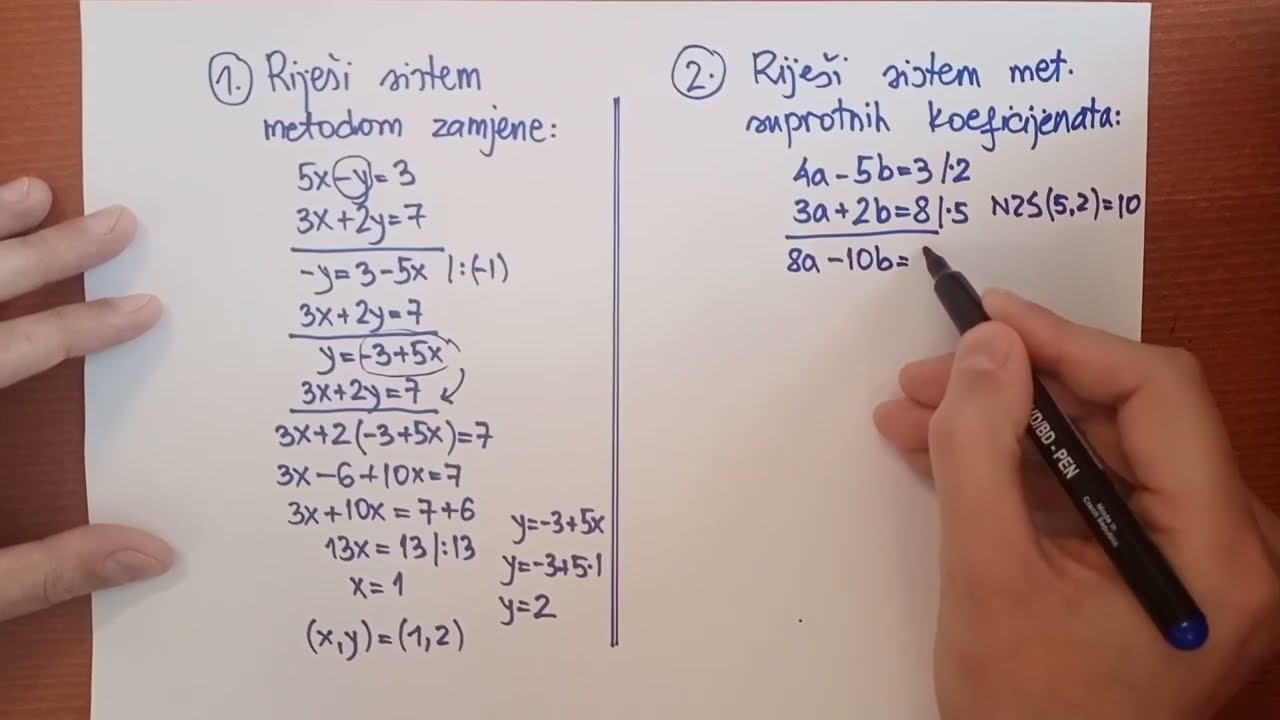 1. Riješi sistem
metodom zamjene:
5x-y=3
3x+2y=7
-y=3-5x /:(-1)
3x+2y=7
y=-3+5x
3x+2y=7
3x+2(-3+5x)=7
3x-6+10x=7
3x+10x=7+6
13x=13/:13
x=1
(x,y)=(1,2)
y=-3+5x
y=-3+5·1
y=2
2. Riješi sistem met.
suprotnih koeficijenata:
4a-5b=3/·2
3a+2b=8/·5 NZS(5,2)=10
8a-10b=
VD/BD-PEN
Made in
Czech Republic